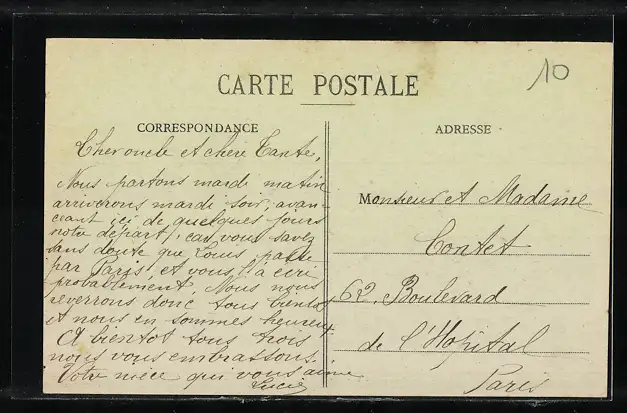 10
CARTE POSTALE
CORRESPONDANCE
Cher oncle et chère Tante,
Nous partons mardi matin
arriverons mardi soir, avan-
çant ici de quelques jours
notre départ, car vous savez
sans doute que Louis passe
par Paris, et vous a écrit
probablement. Nous nous
reverrons donc tous bientôt
et nous en sommes heureux.
A bientôt tous trois
nous vous embrassons.
Votre nièce qui vous aime
Lucie
ADRESSE
Monsieur et Madame
Contet
62, Boulevard
de l'Hôpital
Paris